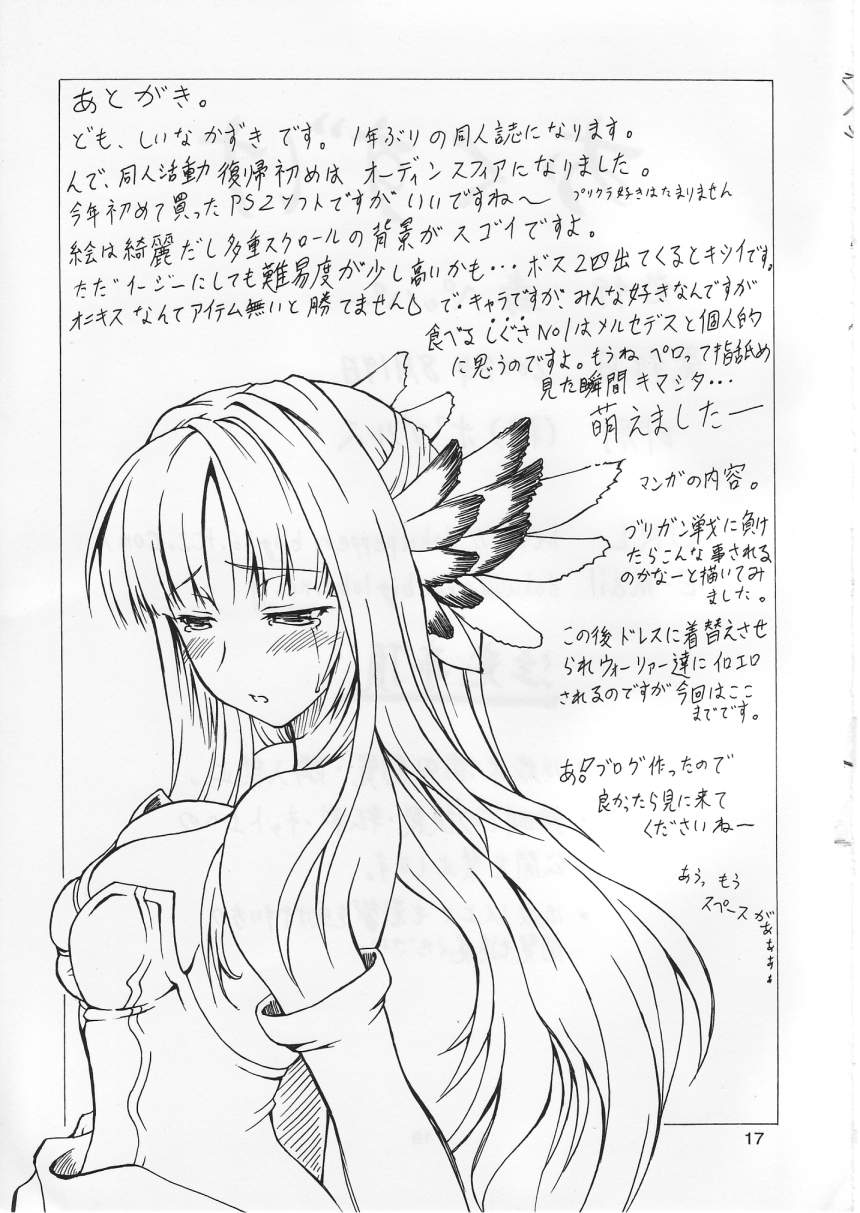 あとがき。
ども、しいなかずきです。1年ぶりの同人誌になります。
んで、同人活動復帰初めはオーディンスフィアになりました。
今年初めて買ったPS2ソフトですがいいですね〜 プリクラ好きはたまりません
絵は綺麗だし多重スクロールの背景がスゴイですよ。
ただイージーにしても難易度が少し高いかも・・・ボス2匹出てくるとキツイです。
オニキスなんてアイテム無いと勝てません で・キャラですが、みんな好きなんですが
食べるしぐさNo1はメルセデスと個人的
に思うのですよ。もうね ペロって指舐め
見た瞬間キマシタ・・・
萌えましたー
マンガの内容。
ブリガン戦に負け
たらこんな事される
のかなーと描いてみ
ました。
この後ドレスに着替えさせ
られウォーリァー達にイロエロ
されるのですが今回はここ
までです。
あ!ブログ作ったので
良かったら見に来て
くださいねー
あうっもう
スペースがぁぁぁぁ
17